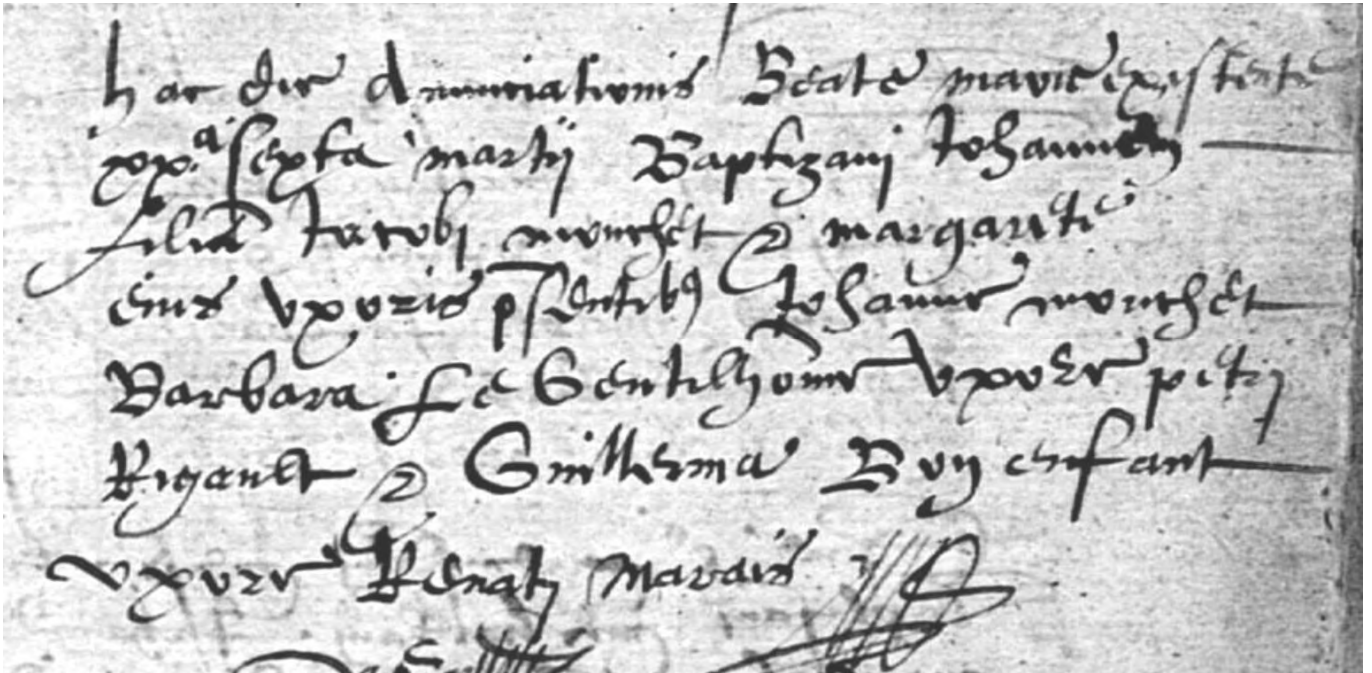 hac die Anunciationis Beate marie existente
xx.a sexta martij Baptizavj Johannem
filiā Jacobj mouchet & margarete
eius uxoris p̄sentibꝰ Johanne mouchet
Barbara Le Gentilhōme uxore petrj
Rigault & Guillerma Bon enfant
uxore Renatj marais